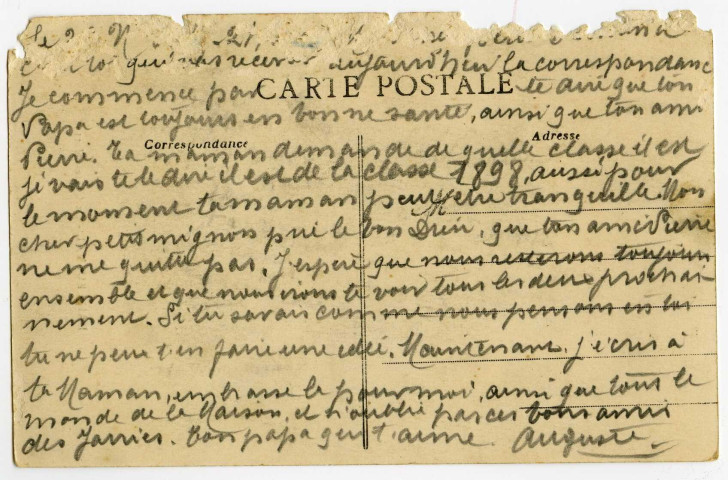 Le
qui vas recevoir aujourd'hui la correspondance
CARTE POSTALE
Je commence par te dire que ton
Papa est toujours en bonne santé, ainsi que ton ami
Correspondance
Adresse
Pierre. Ta maman demande de quelle classe il est
je vais te le dire il est de la classe 1898, aussi pour
le moment ta maman peut être tranquille. Mon
M
cher petit mignon prie le bon Dieu, que ton ami Pierre
ne me quitte pas. J'espère que nous resterons toujours
ensemble et que nous irons te voir tous les deux prochai
nement. Si tu savais comme nous pensons en toi
tu ne peux t'en faire une idée. Maintenant j'écris à
ta Maman, embrasse la pour moi, ainsi que tous le
monde de la Maison, et n'oublie pas ces bons amis
des Jarries. Ton papa qui t'aime. Auguste